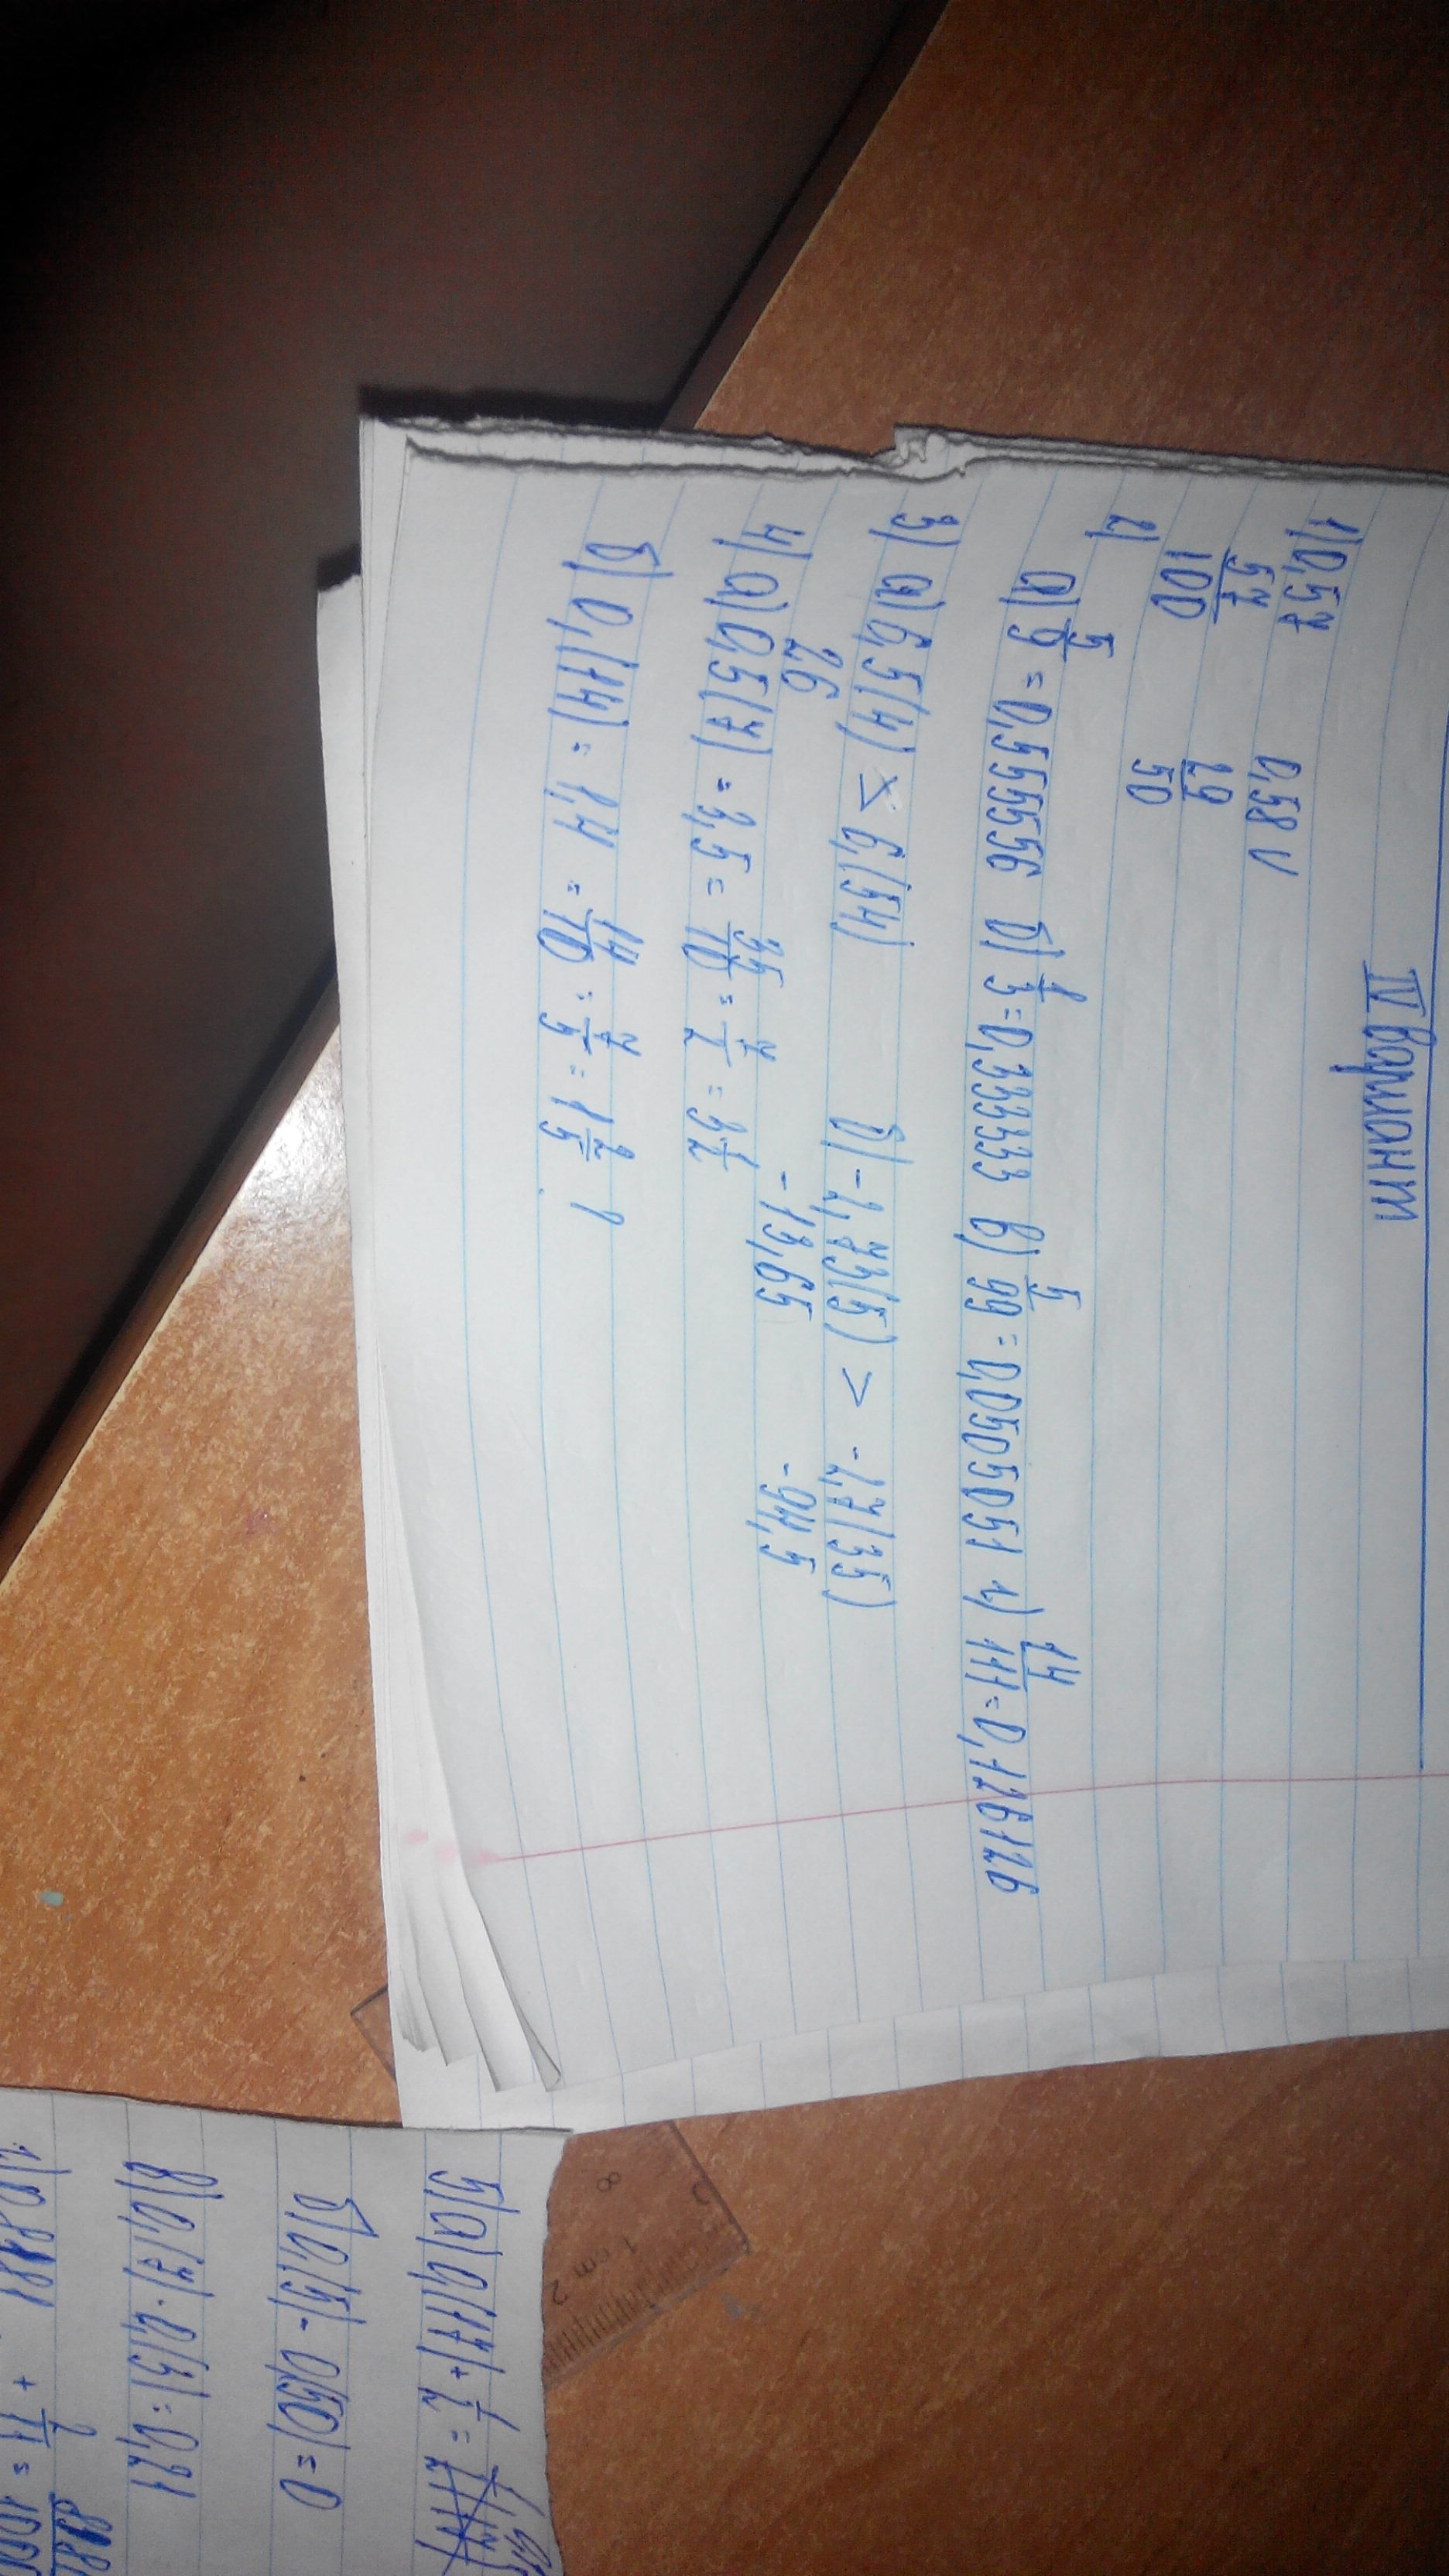 IV вариант
1) 0,57 0,58 ν
57/100 29/50
2)
а) 5/9 = 0,555556 б) 1/3 = 0,333333 в) 5/99 = 0,0505051 г) 14/111 = 0,126126
3) а) 6,5(4) > 6,(54) б) -2,73(5) > -2,7(35)
26 -13,65 -94,5
4) а) 0,5(7) = 3,5 = 35/10 = 7/2 = 3 1/2
б) 0,(14) = 1,4 = 14/10 = 7/5 = 1 2/5 ?
5) а) 0,(17) + 1/2 =
б) 0,(5) - 0,(50) = 0
в) 0,(7) · 0,(3) = 0,21
+ 2/11 =
8
1 cm 2